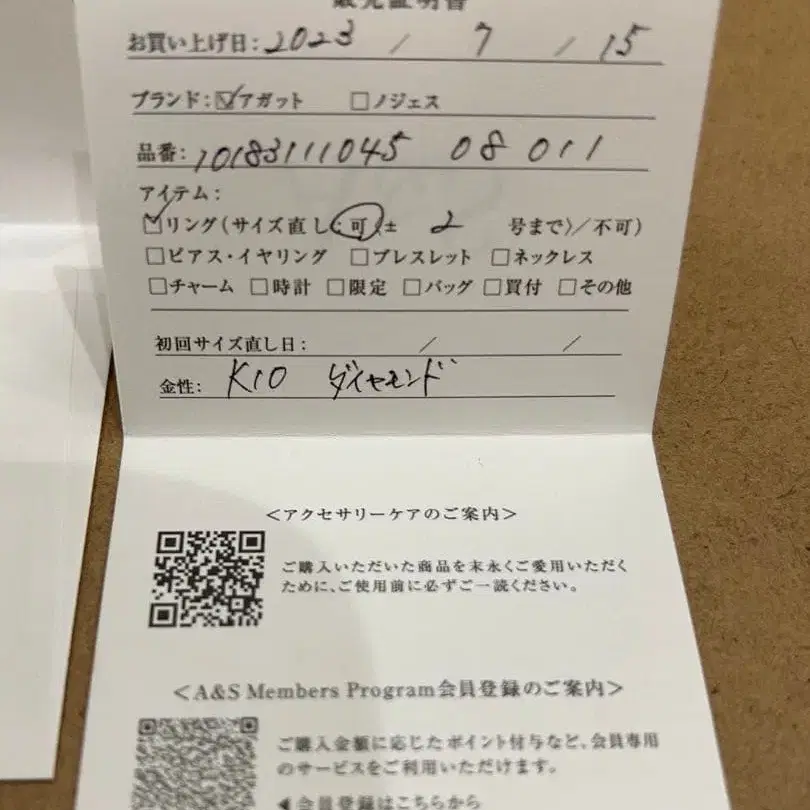 販売証明書
お買い上げ日: 2023 / 7 / 15
ブランド: ☑アガット □ノジェス
品番: 10183111045 08 011
アイテム:
☑リング(サイズ直し:可(± 2 号まで)/不可)
□ピアス・イヤリング □ブレスレット □ネックレス
□チャーム □時計 □限定 □バッグ □買付 □その他
初回サイズ直し日: / /
金性: K10 ダイヤモンド
<アクセサリーケアのご案内>
ご購入いただいた商品を末永くご愛用いただく
ために、ご使用前に必ずご一読ください。
<A&S Members Program会員登録のご案内>
ご購入金額に応じたポイント付与など、会員専用
のサービスをご利用いただけます。
◀会員登録はこちらから